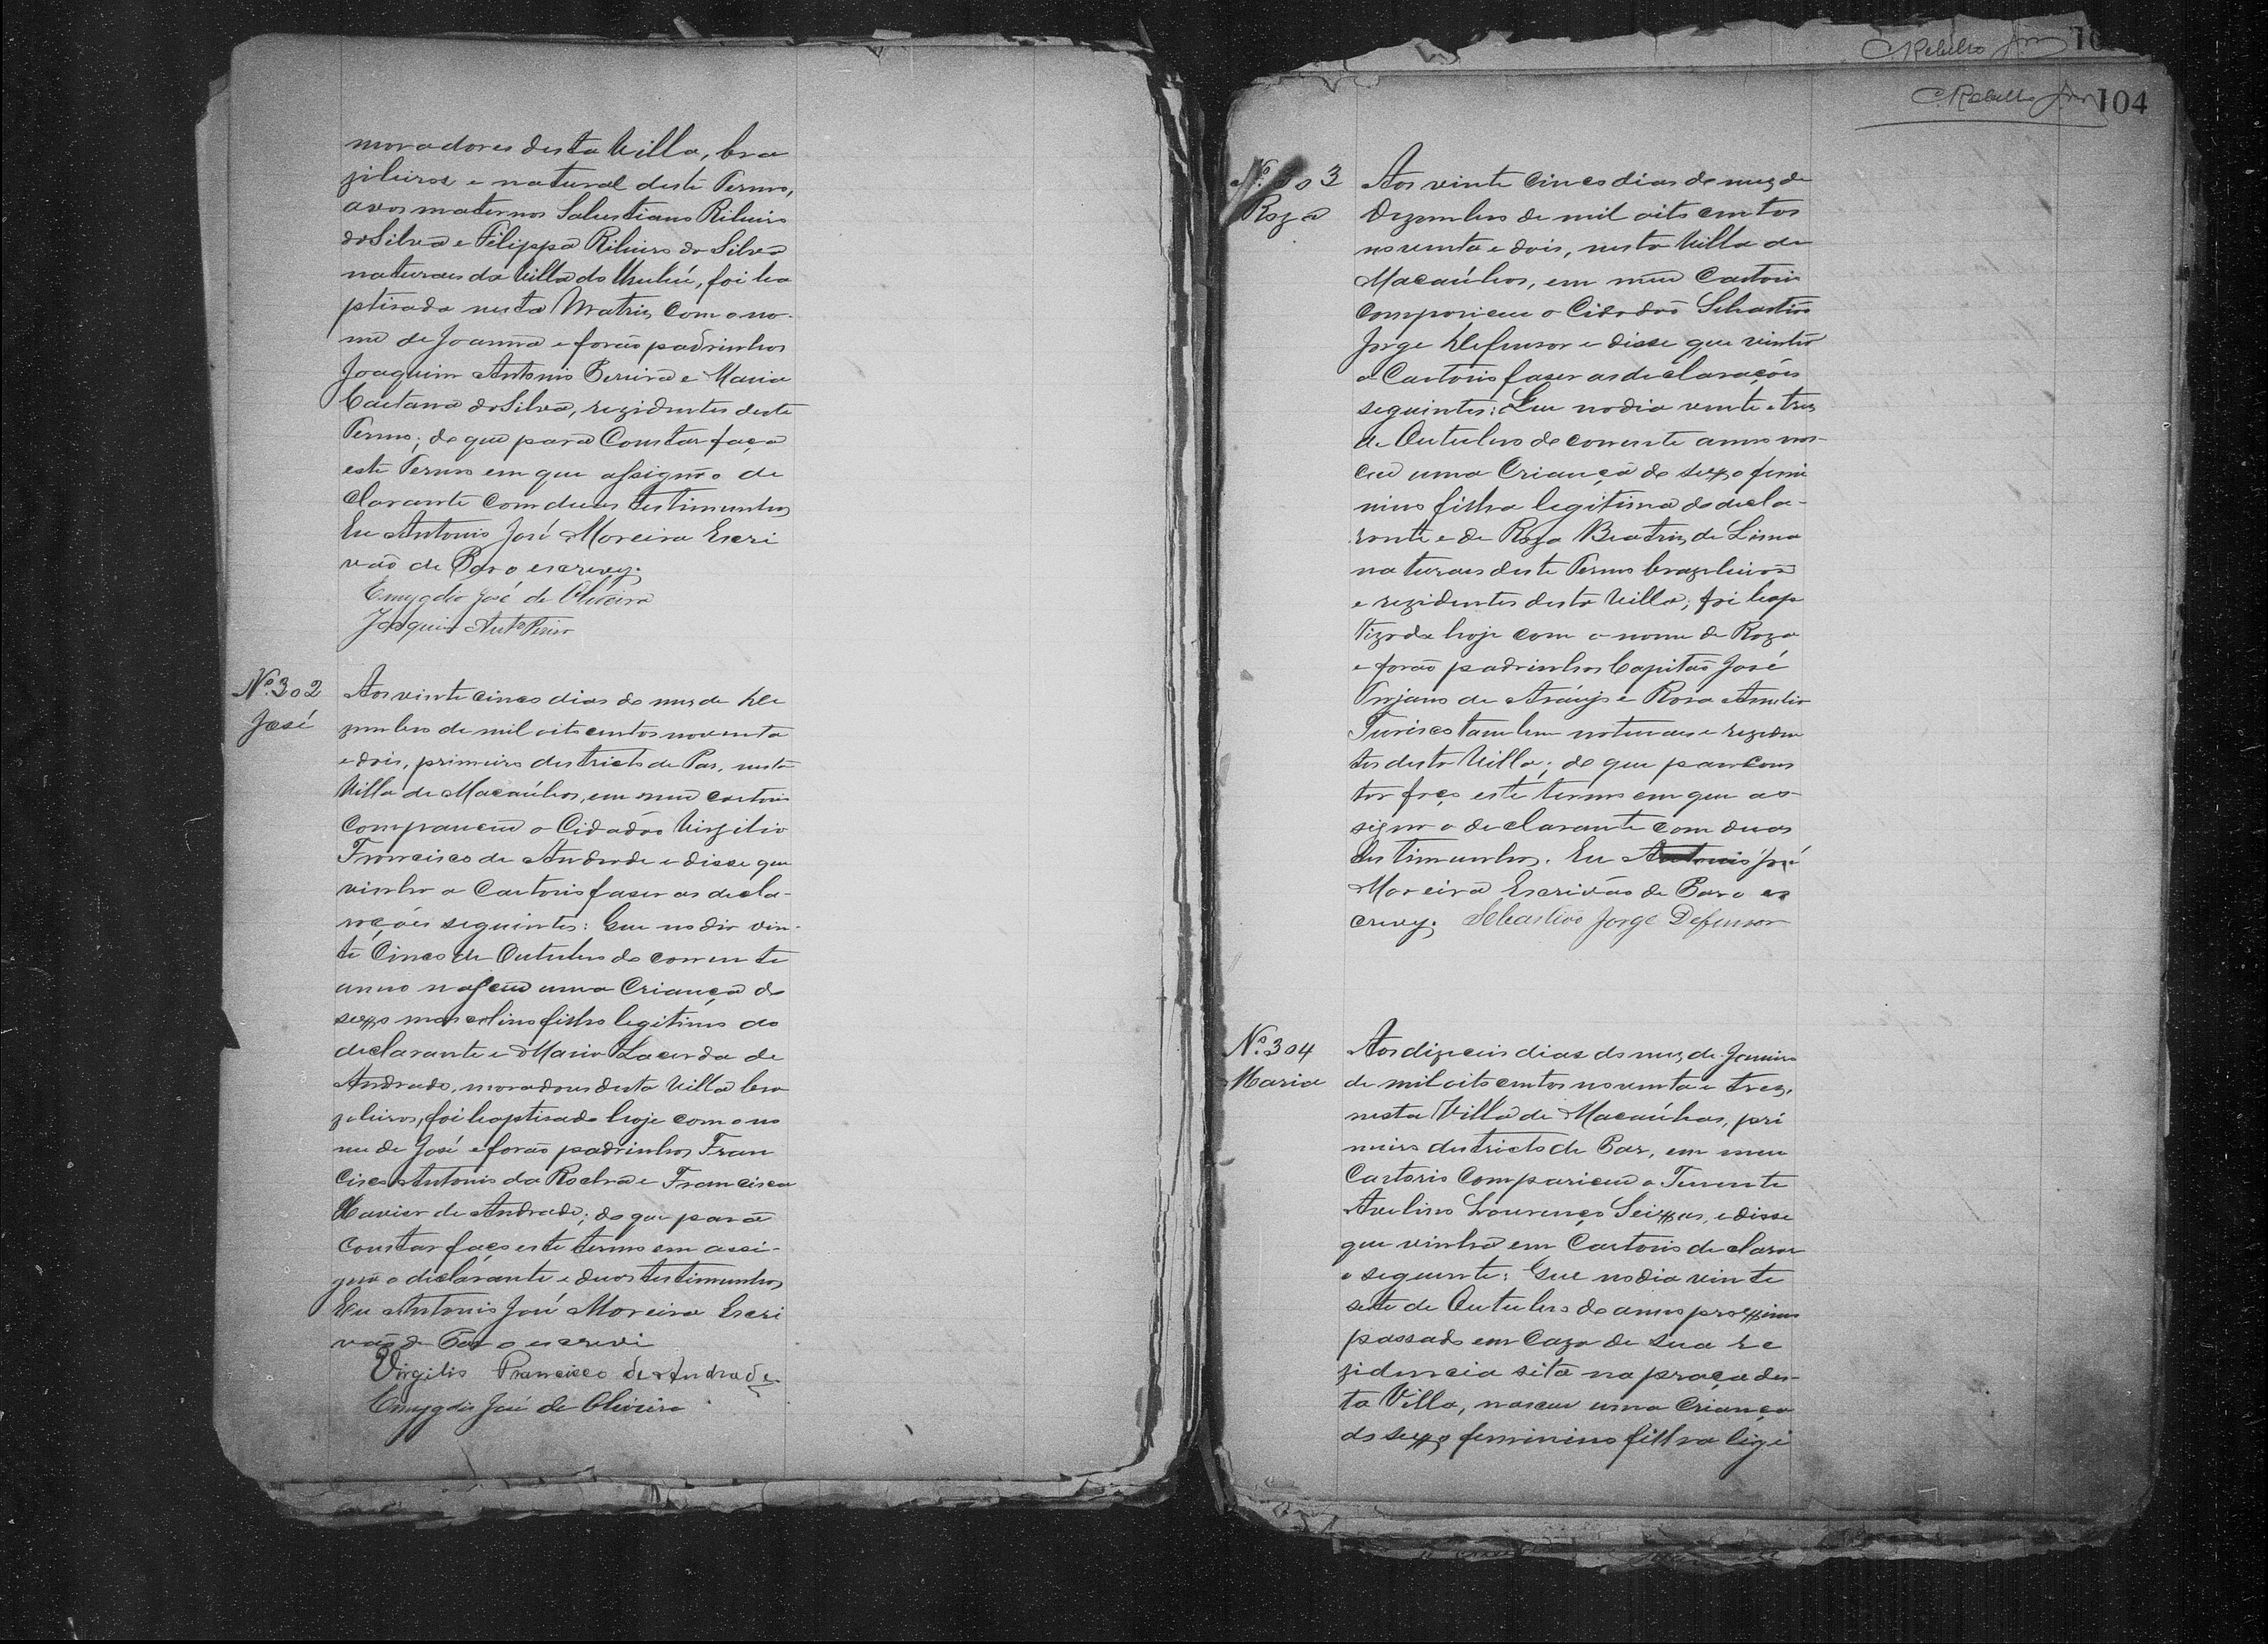 moradores desta Villa, bra
zileiros e natural deste Termo,
avos maternos Salustiano Ribeiro
da Silva e Filippa Ribeiro da Silva
naturaes da Villa do Urubú, foi ba
ptisada nesta Matriz com o no-
me de Joanna e forão padrinhos
Joaquim Antonio Pereira e Maria
Caetana da Silva, rezidentes deste
Termo; de que para Constar faço
este Termo em que assigna o de
clarante com duas testimunhas
Eu Antonio José Moreira Escri
vão de Paz o escrevy.
Emygdio José de Oliveira
Joaquim Antº
Nº 302
José
Aos vinte cinco dias do mez de De
zembro de mil oito centos noventa
e dois, primeiro districto de Paz, nesta
Villa de Macaúbas, em meu cartorio
compareceu o Cidadão Virgilio
Francisco de Andrade e disse que
vinha a Cartorio faser as decla-
rações seguintes: Que no dia vin-
te Cinco de Outubro do corrente
anno nasceu uma Criança do
sexo masculino filho legitimo do
declarante e Maria Lacerda de
Andrade, moradores desta Villa bra
zileiros, foi baptisado hoje com o no
me de José e forão padrinhos Fran
cisco Antonio da Rocha e Francisca
Xavier de Andrade; do que para
Constar faço este termo em assi-
gna o declarante e duas testimunhas
Eu Antonio José Moreira Escri
vão de Paz o escrevi
Virgilio Francisco de Andrade
Emygdio José de Oliveira
C Rebello Jnr 10
C Rebello Jnr 104
Nº 303
Roza
Aos vinte cinco dias do mez de
Dezembro de mil oito centos
noventa e dois, nesta Villa de
Macaúbas, em meu Cartorio
compareceu o Cidadão Sebastião
Jorge Defensor e disse que vinha
a Cartorio faser as declarações
seguintes: Que no dia vente e tres
de Outubro do corrente anno nas-
ceu uma Criança do sexo femi
nino filha legitima do decla-
rante e de Roza Beatriz de Lima
naturaes deste Termo brazileiros
e rezidentes desta Villa; foi bap
tizada hoje com o nome de Roza
e forão padrinhos Capitão José
Trajano de Araújo e Rosa Amelia
tambem naturaes e reziden
tes desta Villa; do que para Cons
tar faço este termo em que as-
signa o declarante com duas
testimunhas. Eu Antonio José
Moreira Escrivão de Paz o es
crevy. Sebastião Jorge Defensor
Nº 304
Maria
Aos dizeceis dias do mez de Janeiro
de mil oito centos noventa e trez,
nesta Villa de Macaúbas, pri
meiro districto de Paz, em meu
Cartorio Compareceu o Tenente
Avelino Lourenço Seixas, e disse
que vinha em Cartorio declarar
o seguente: Que no dia vinte
sete de Outubro do anno proximo
passado em Caza de sua re
zidencia sita na praça des-
ta Villa, nasceu uma Criança
do sexo feminino filha legi